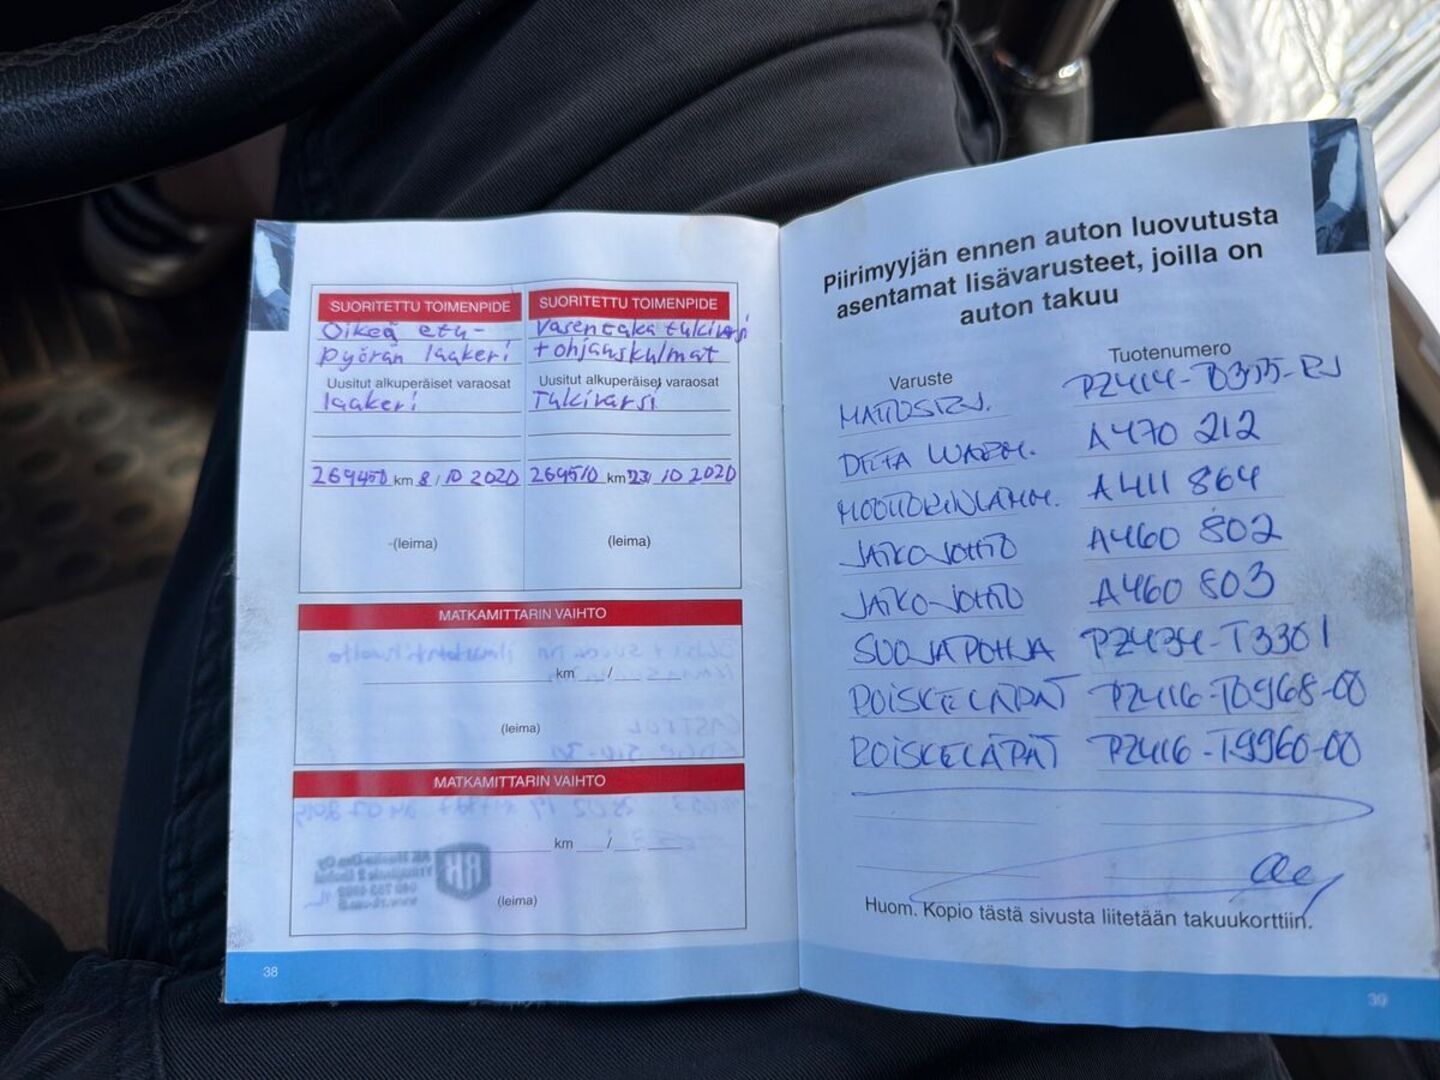 SUORITETTU TOIMENPIDE
Oikea etu-
pyörän laakeri
Uusitut alkuperäiset varaosat
laakeri
269450 km 8 / 10 2020
-(leima)
SUORITETTU TOIMENPIDE
Vasen taka tukivarsi
+ ohjauskulmat
Uusitut alkuperäiset varaosat
Tukivarsi
269510 km 23 / 10 2020
(leima)
MATKAMITTARIN VAIHTO
km /
(leima)
MATKAMITTARIN VAIHTO
km /
(leima)
38
Piirimyyjän ennen auton luovutusta
asentamat lisävarusteet, joilla on
auton takuu
Varuste Tuotenumero
MATTOSRJ.
DEFA A470 212
MOOTTORINLÄMM. A411 864
JATKOJOHTO A460 802
JATKOJOHTO A460 803
SUOJAPOHJA PZ434-T3301
ROISKELÄPÄT PZ416-T0968-00
ROISKELÄPÄT PZ416-T9960-00
Huom. Kopio tästä sivusta liitetään takuukorttiin.
39